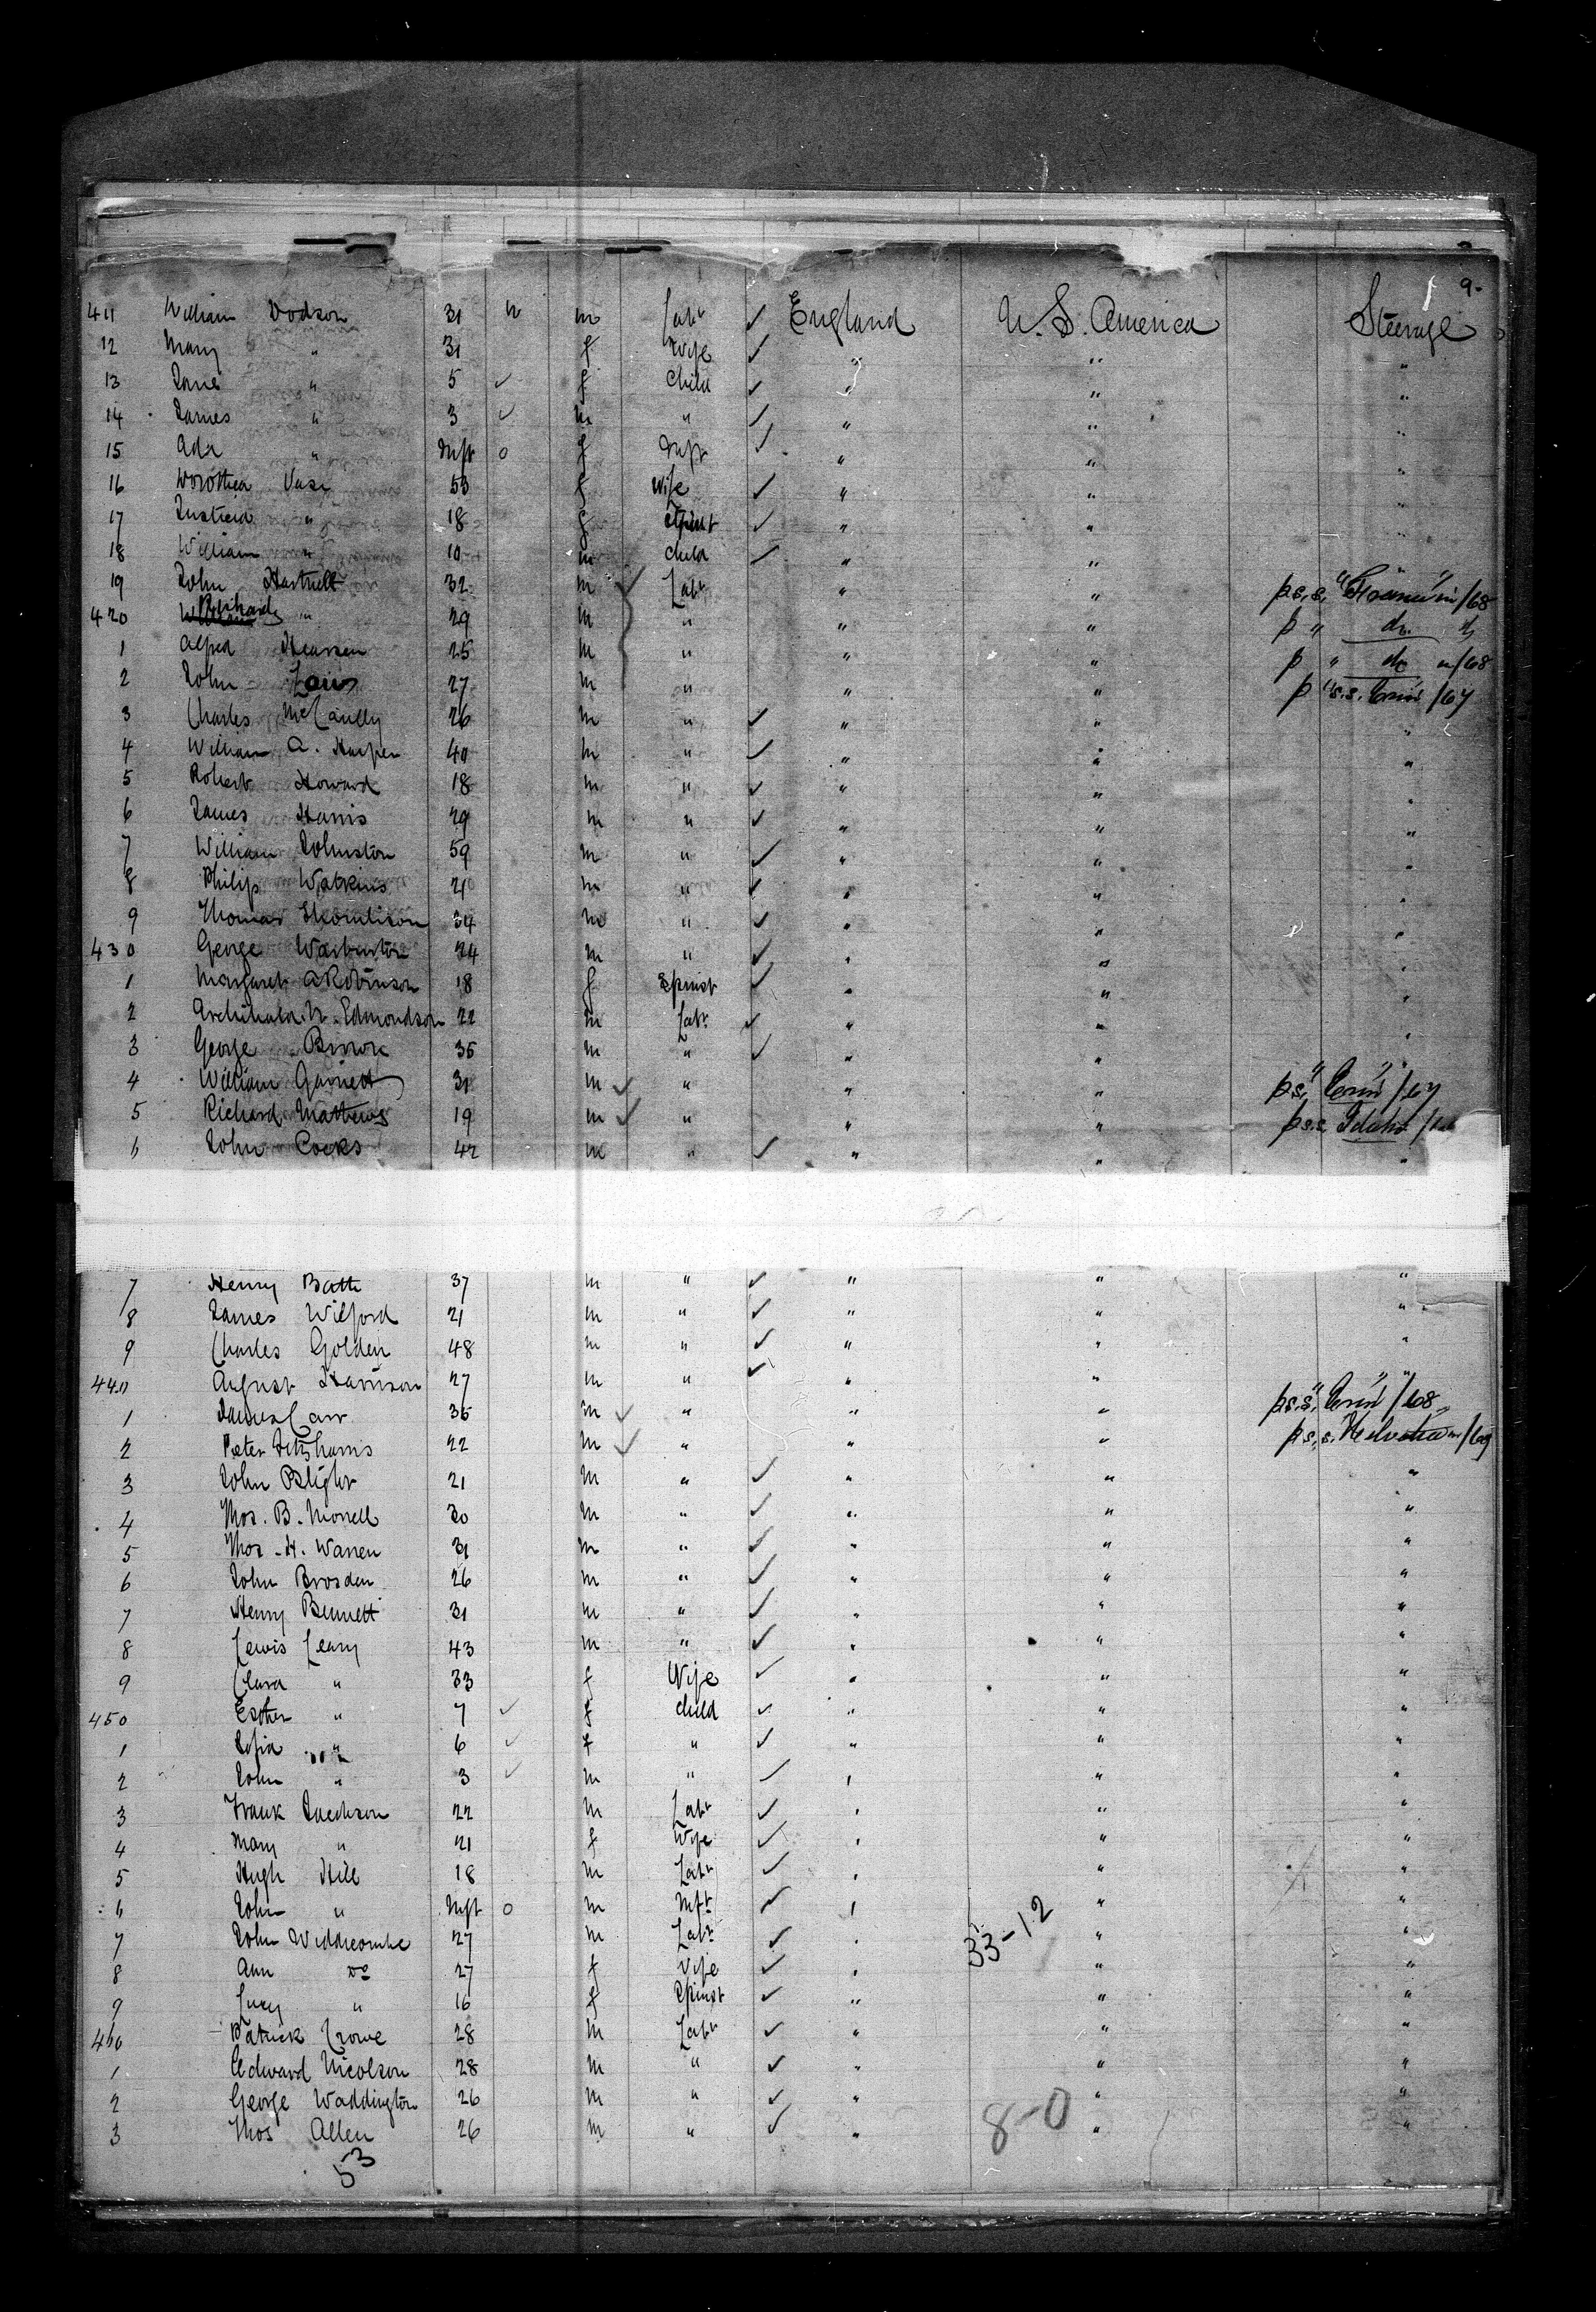 9.
411 William Dodson 31 m Labr ✓ England U. S. America Steerage
12 Mary " 31 f Wife ✓ " " "
13 Jane " 5 ✓ f Child ✓ " " "
14 James " 3 ✓ m " ✓ " " "
15 Ada " Inft o f Inft ✓ " " "
16 Dorothea Vasi 53 f Wife ✓ " " "
17 " 18 f Spinst ✓ " " "
18 William " 10 m Child ✓ " " "
19 John Hartnell 32 m ✓ Labr " " p s.s. /68
420 Richard " 29 m " " " p " do.
1 Alfred 25 m " " " p " do /68
2 John Laws 27 m " " " p "s.s. Erin /67
3 Charles McCaully 26 m " ✓ " " "
4 William A. Harper 40 m " ✓ " " "
5 Robert Howard 18 m " ✓ " " "
6 James Harris 29 m " ✓ " " "
7 William Johnston 59 m " ✓ " " "
8 Philip Watkins 21 m " ✓ " " "
9 Thomas 34 m " ✓ " " "
430 George Warburton 24 m " ✓ " " "
1 Margaret A Robinson 18 f Spinst ✓ " " "
2 Archibald N. Edmondson 22 m Labr ✓ " " "
3 George Brown 35 m " ✓ " " "
4 William Garnett 31 m ✓ " " " p s. "Erin" /67
5 Richard Mathews 19 m ✓ " " " p s.s. Idaho
6 John Cocks 42 m " ✓ " " "
7 Henry Bath 37 m " ✓ " " "
8 James Wilford 21 m " ✓ " " "
9 Charles Golden 48 m " ✓ " " "
440 August Harrison 27 m " ✓ " " "
1 James Carr 35 m ✓ " " " p s.s. "Erin" /68
2 Peter Fitzharris 22 m ✓ " " " p s.s. Helvetia /69
3 John Blight 21 m " ✓ " " "
4 Thos. B. Morrell 30 m " ✓ " " "
5 Thos. H. Warren 31 m " ✓ " " "
6 John Brosden 26 m " ✓ " " "
7 Henry Bennett 31 m " ✓ " " "
8 Lewis Leary 43 m " ✓ " " "
9 Clara " 33 f Wife ✓ " " "
450 Esther " 7 ✓ f Child ✓ " " "
1 Sofia " 6 ✓ f " ✓ " " "
2 John " 3 ✓ m " ✓ " " "
3 Frank Jackson 22 m Labr ✓ " " "
4 Mary " 21 f Wife ✓ " " "
5 Hugh Hill 18 m Labr ✓ " " "
6 John " Inft o m Inft ✓ " " "
7 John Widdicombe 27 m Labr ✓ " 33-12 " "
8 Ann Do 27 f Wife ✓ " " "
9 Lucy " 16 f Spinst ✓ " " "
460 Patrick Crowe 28 m Labr ✓ " " "
1 Edward Nicolson 28 m " ✓ " " "
2 George Waddington 26 m " ✓ " " "
3 Thos Allen 26 m " ✓ " 8-0 " "
53